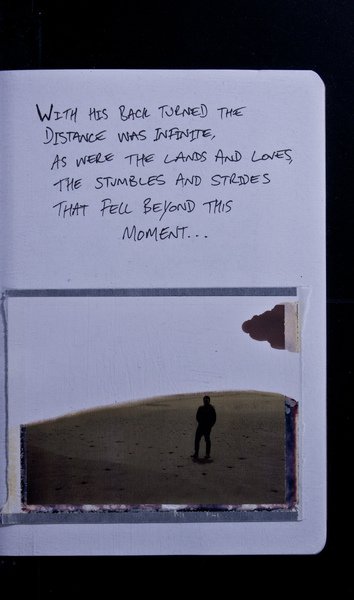 WITH HIS BACK TURNED THE
DISTANCE WAS INFINITE,
AS WERE THE LANDS AND LOVES,
THE STUMBLES AND STRIDES
THAT FELL BEYOND THIS
MOMENT...